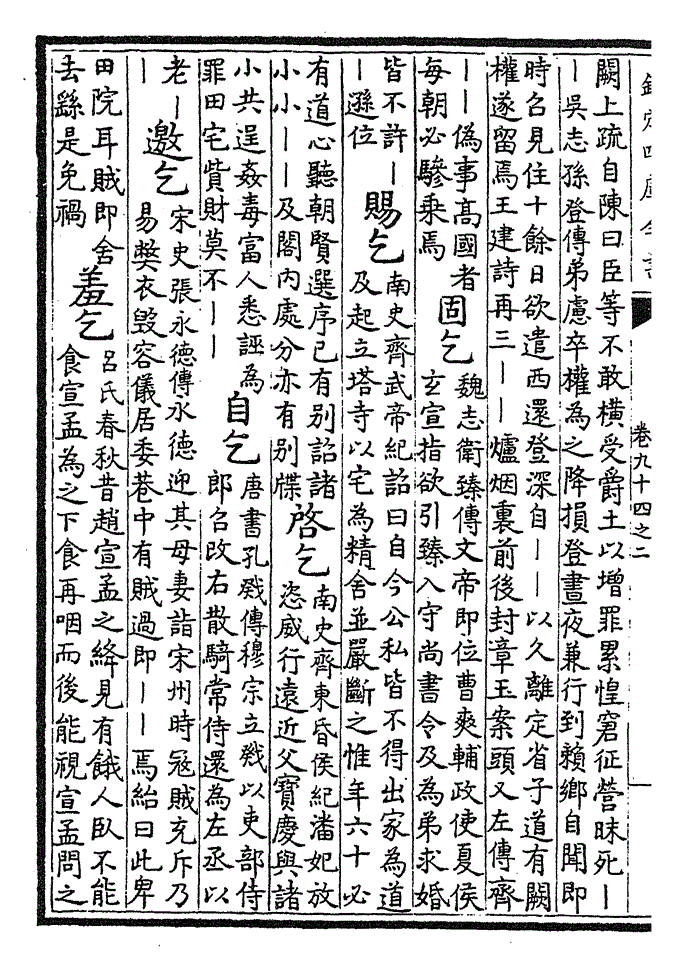 欽定四庫全書
卷九十四之二
闕上疏自陳曰臣等不敢橫受爵土以增罪累惶窘征營昧死丨
丨吳志孫登傳弟慮卒權為之降損登晝夜兼行到賴鄉自聞即
時召見住十餘日欲遣西還登深自丨丨以久離定省子道有闕
權遂留焉王建詩再三丨丨爐烟裏前後封章玉案頭又左傳齊
丨丨偽事高國者
每朝必驂乘焉
固乞
魏志衛臻傳文帝即位曹爽輔政使夏侯
玄宣指欲引臻入守尚書令及為弟求婚
皆不許丨
丨遜位
賜乞
南史齊武帝紀詔曰自今公私皆不得出家為道
及起立塔寺以宅為精舍並嚴斷之惟年六十必
有道心聽朝賢選序已有别詔諸
小小丨丨及閣内處分亦有别牒
啓乞
南史齊東昏侯紀潘妃放
恣威行遠近父寶慶與諸
小共逞姦毒富人悉誣為
罪田宅貲財莫不丨丨
自乞
唐書孔戣傳穆宗立戣以吏部侍
郎召改右散騎常侍還為左丞以
老丨
丨
邀乞
宋史張永德傳永德迎其母妻詣宋州時寇賊充斥乃
易獘衣毁容儀居委巷中有賊過即丨丨焉紿曰此卑
田院耳賊即舍
去繇是免禍
羞乞
呂氏春秋昔趙宣孟之絳見有餓人臥不能
食宣孟為之下食再咽而後能視宣孟問之